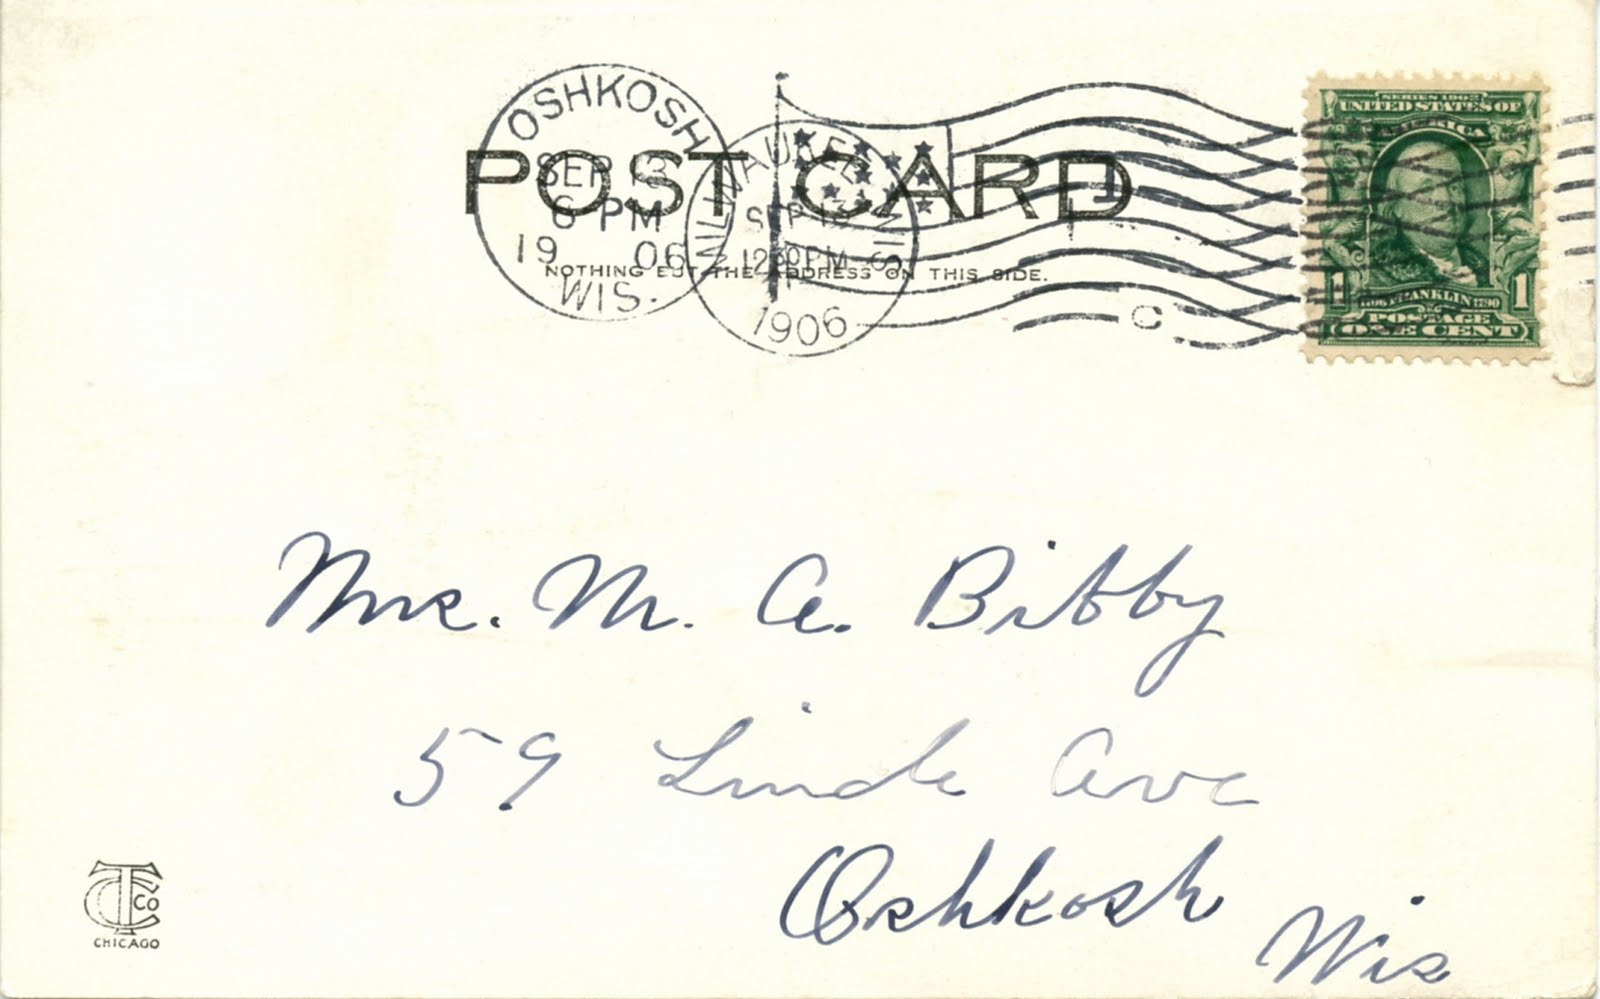 OSHKOSH
SEP 13
6 PM
19 06
WIS.
MILWAUKEE WIS
SEP 13
12 30 PM
1906
POST CARD
NOTHING BUT THE ADDRESS ON THIS SIDE.
C
SERIES 1902
UNITED STATES OF
AMERICA
1 FRANKLIN 1790 1
POSTAGE
ONE CENT
Mrs. M. A. Bibby
59 Linde Ave
Oshkosh
Wis
TC CO
CHICAGO